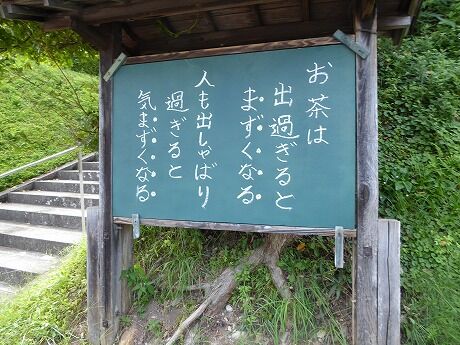 お茶は
出過ぎると
まずくなる
人も出しゃばり
過ぎると
気まずくなる